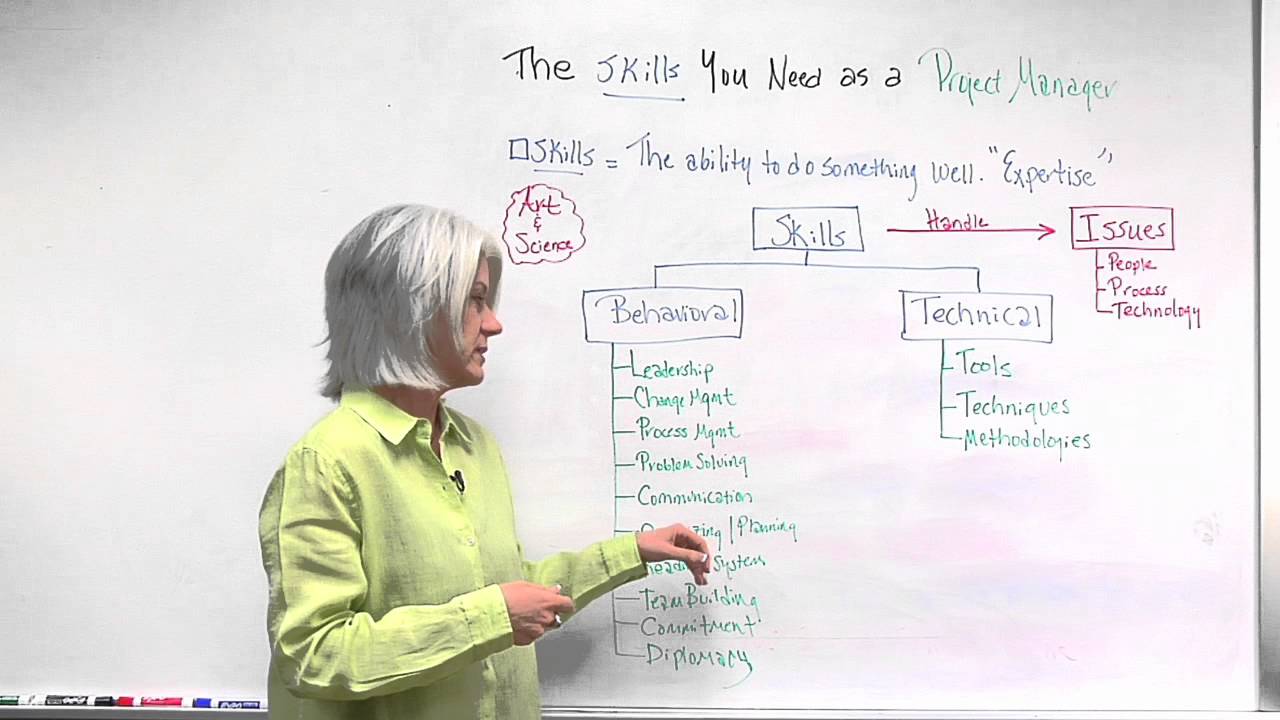 The Skills You Need as a Project Manager
Skills = The ability to do something well. "Expertise"
Art
&
Science
Skills
Handle
Issues
People
Process
Technology
Behavioral
Leadership
Change Mgmt
Process Mgmt
Problem Solving
Communication
| Planning
System
Team Building
Commitment
Diplomacy
Technical
Tools
Techniques
Methodologies